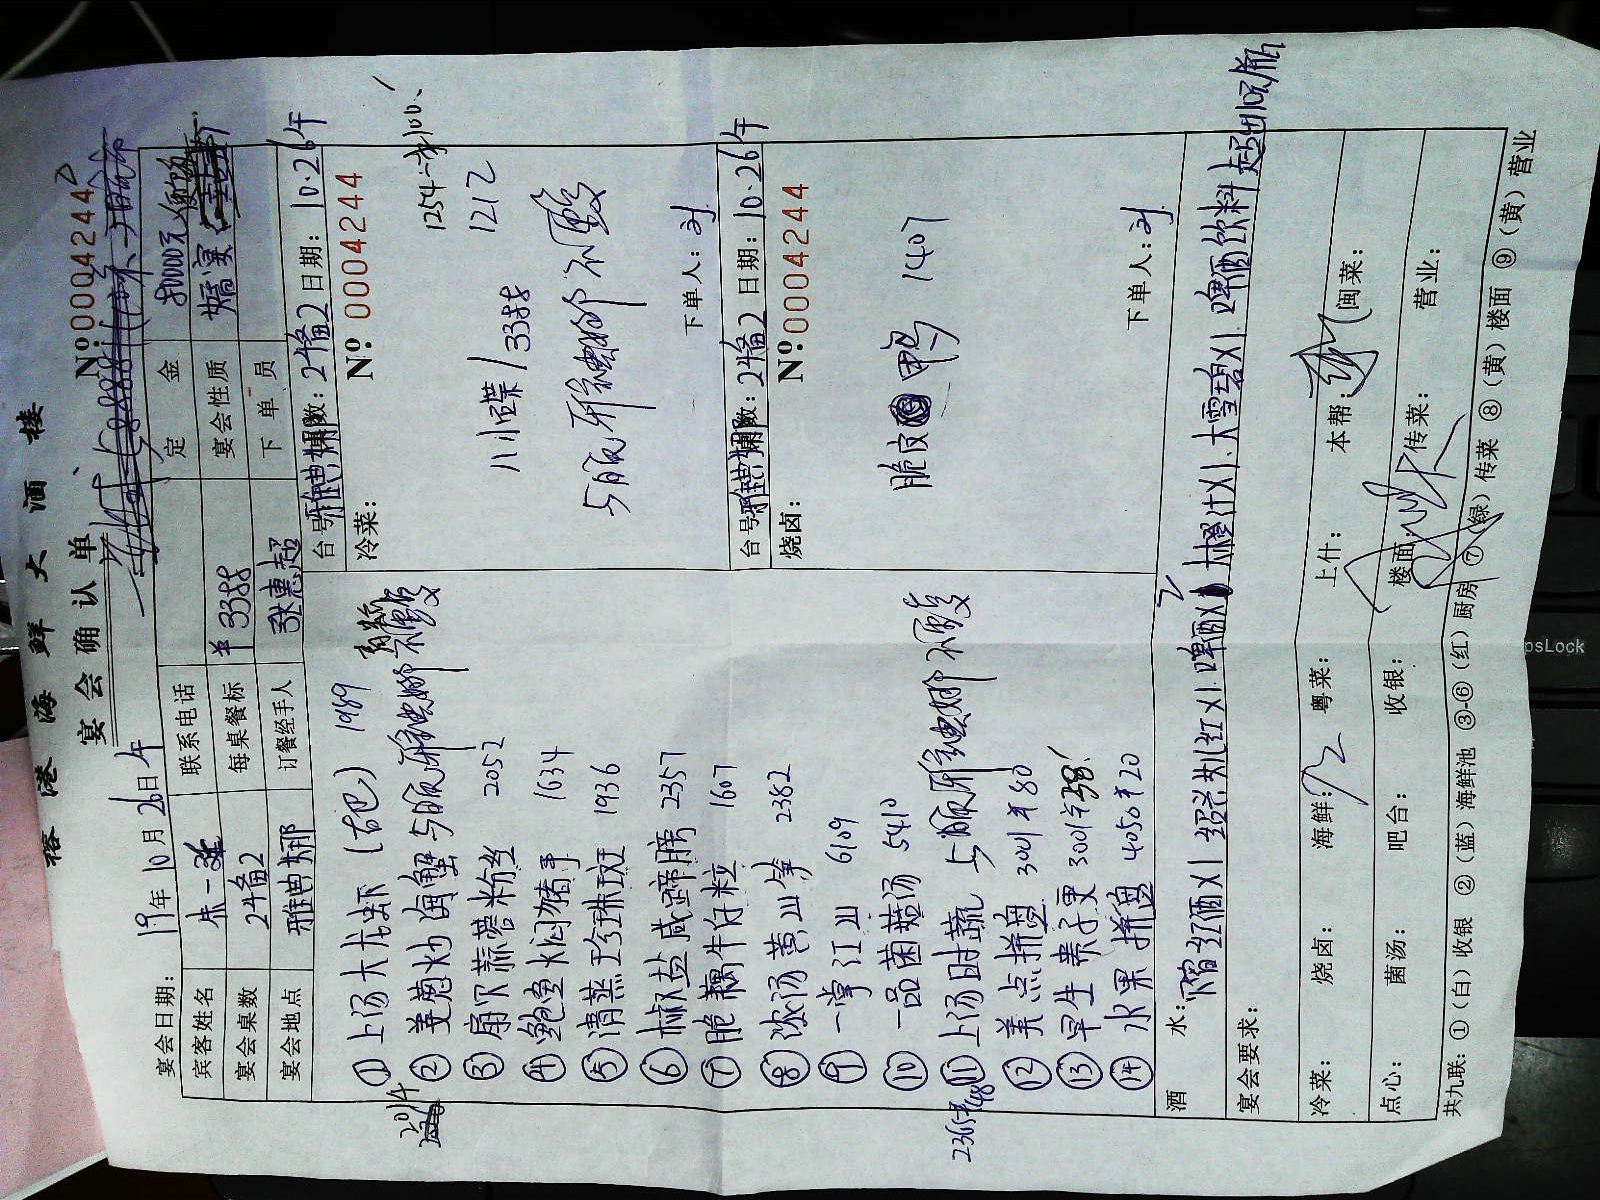 榕港海鲜大酒楼
宴会确认单
Nº:0004244
宴会日期: 19年10月26日午
宾客姓名 联系电话 定金 80000元
宴会桌数 24备2 每桌餐标 ¥3388 宴会性质 婚宴
宴会地点 雅典娜 订餐经手人 张惠超 下单员
①上汤大龙虾 1989
2014
②姜葱炒海蟹 与版雅典娜不变
③扇贝蒜蓉粉丝 2052
④鲍鱼焖猪手 1634
⑤清蒸珍珠斑 1936
⑥椒盐咸蹄膀 2357
⑦脆藕牛仔粒 1607
⑧浓汤黄山笋 2382
⑨一掌江山 6109
⑩一品菌菇汤 5410
⑪上汤时蔬 与版雅典娜不变
⑫美点拼盘 3001 ¥80
⑬早生贵子更 3001 ¥38
⑭水果拼盘 4050 ¥20
台号 雅典娜 数: 24备2 日期: 10.26午
冷菜: Nº:0004244
1254
八小碟 1212
3388
与版雅典娜不变
下单人: 刘
台号 雅典娜 数: 24备2 日期: 10.26午
烧卤: Nº:0004244
脆皮鸭 1407
下单人: 刘
酒水: 橙汁X1.大雪碧X1.啤酒饮料
宴会要求:
冷菜: 烧卤: 海鲜: 粤菜: 上什: 本帮: 闽菜:
点心: 菌汤: 吧台: 收银: 楼面: 传菜: 营业:
共九联: ①(白)收银 ②(蓝)海鲜池 ③-⑥(红)厨房 ⑦(绿)传菜 ⑧(黄)楼面 ⑨(黄)营业
psLock